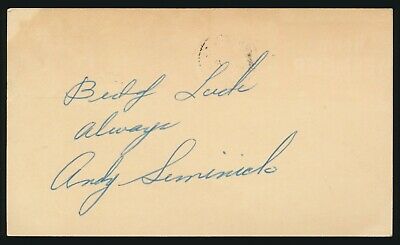 Best of Luck
Always
Andy Seminick